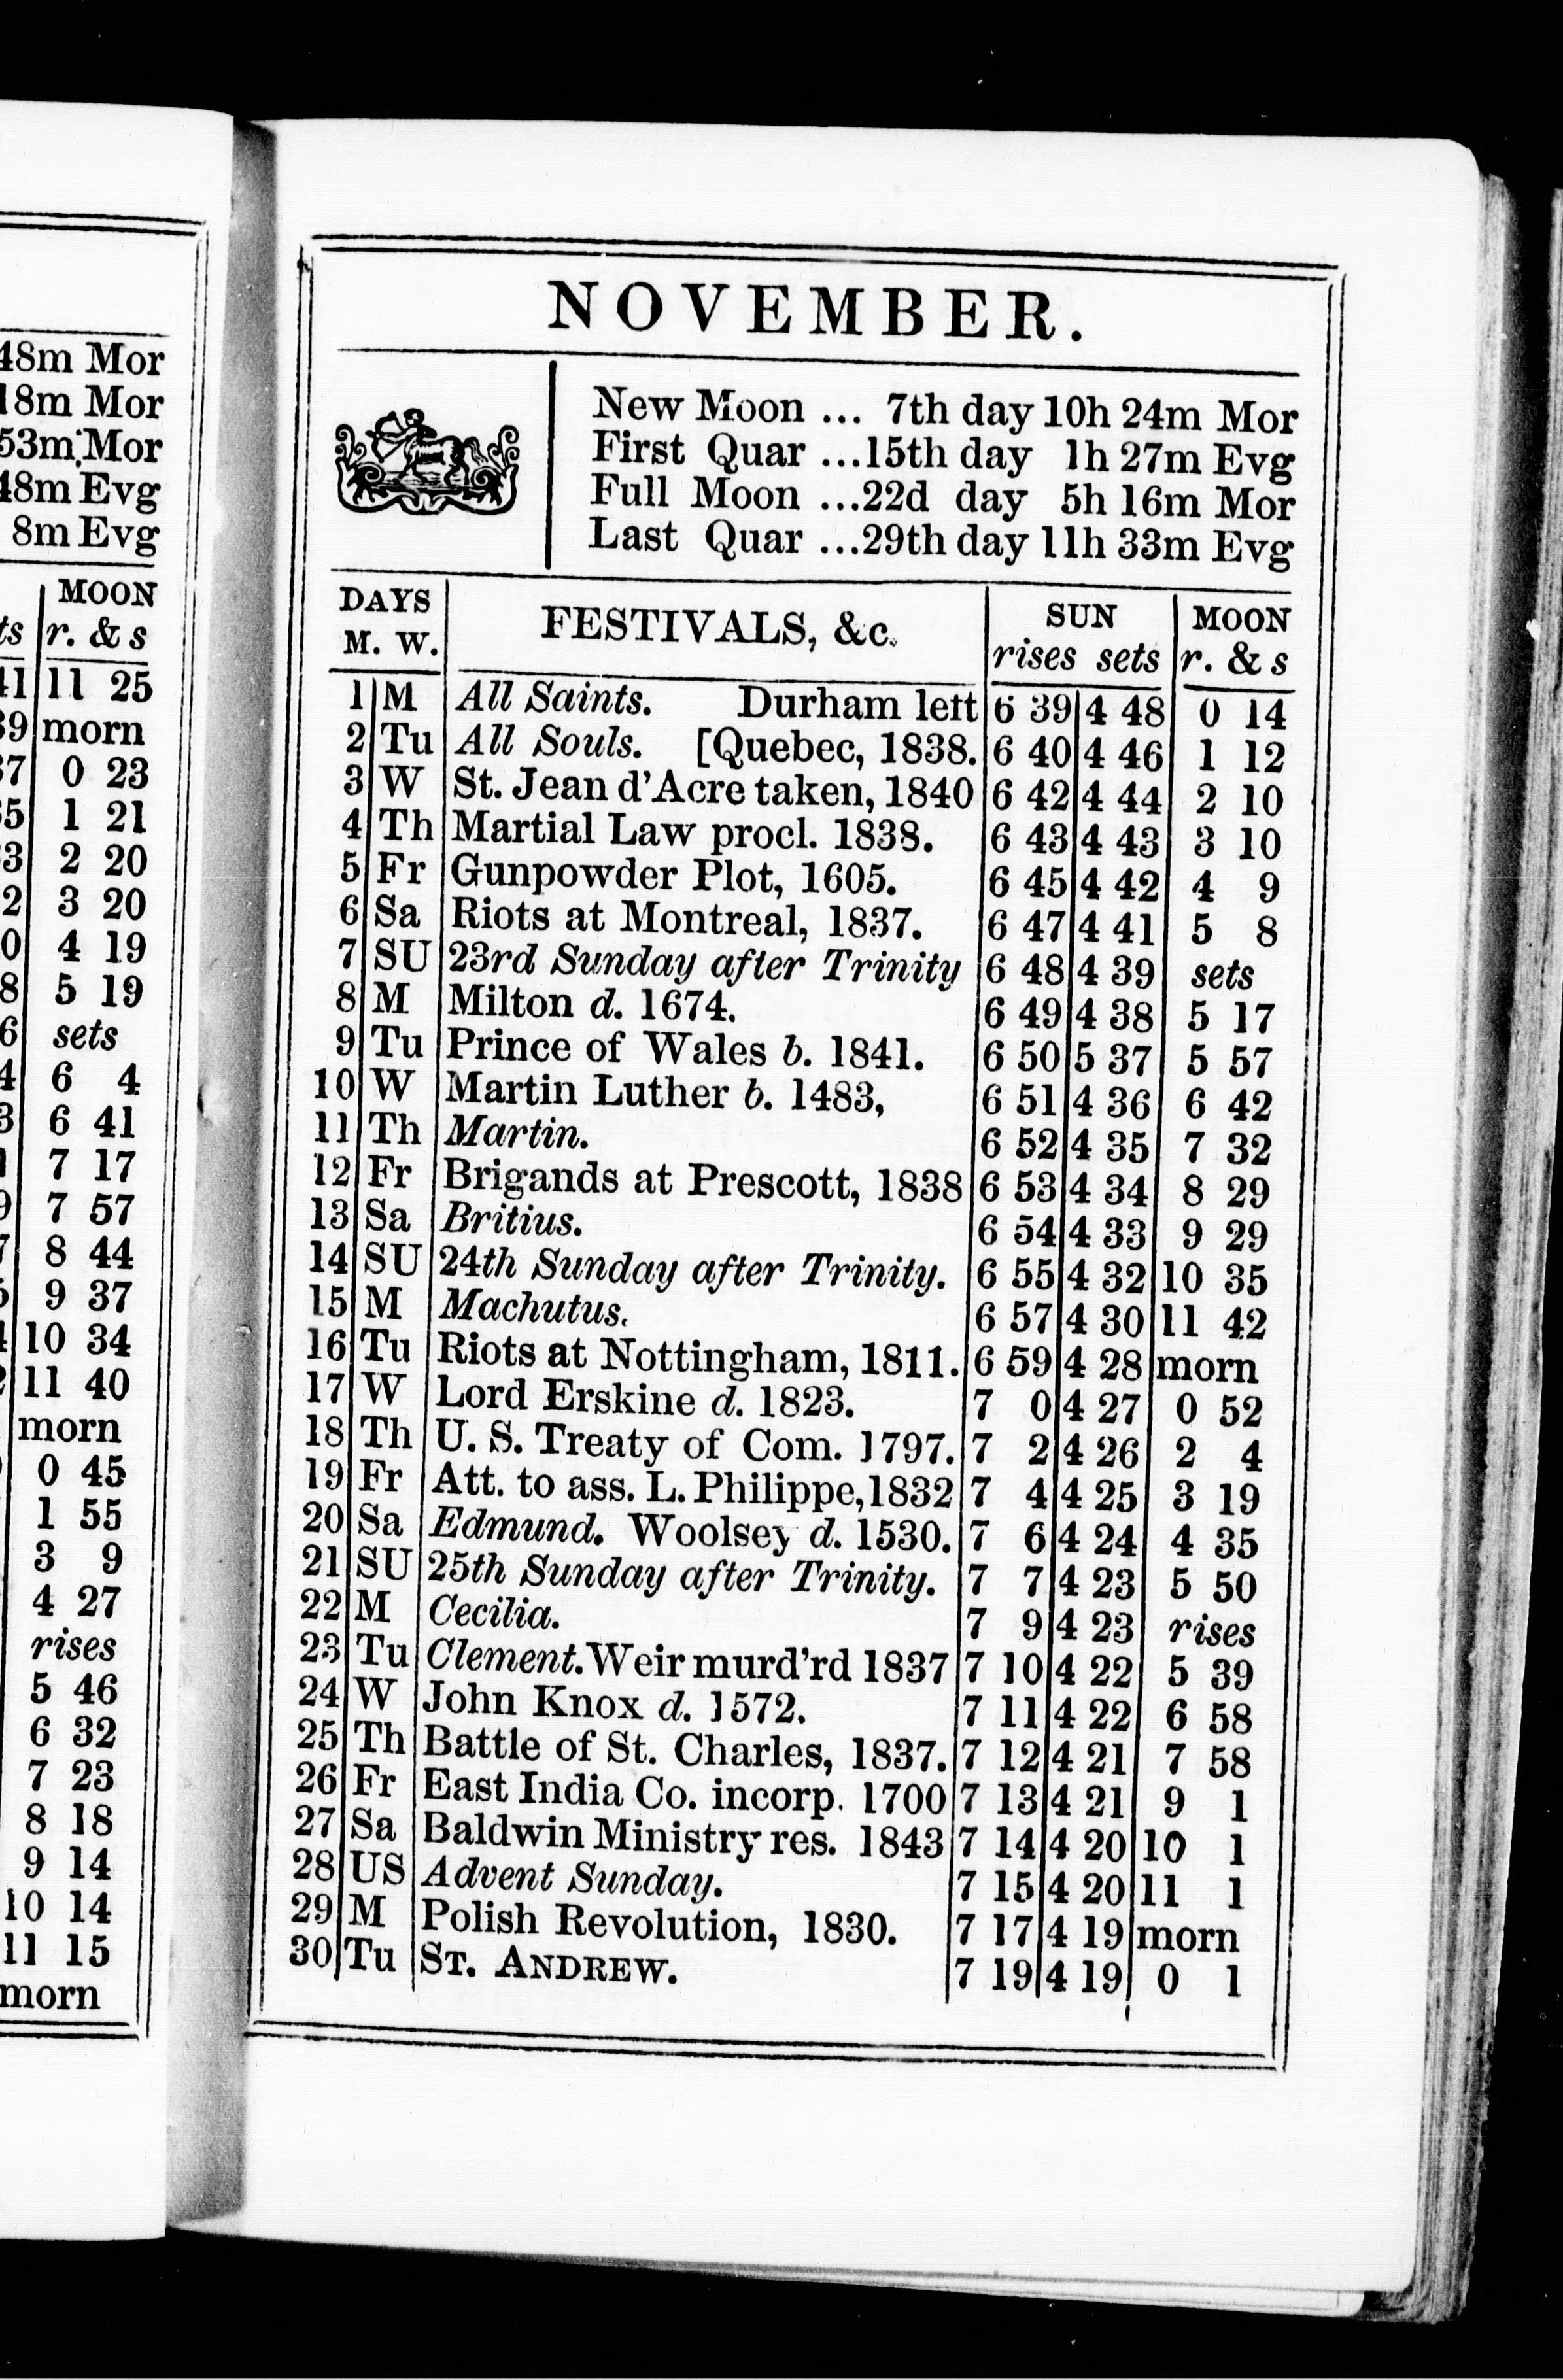 48m Mor
18m Mor
53m Mor
48m Evg
8m Evg
MOON
ts r. & s
41 11 25
39 morn
37 0 23
35 1 21
33 2 20
2 3 20
0 4 19
8 5 19
6 sets
4 6 4
3 6 41
1 7 17
9 7 57
7 8 44
5 9 37
10 34
11 40
morn
0 45
1 55
3 9
4 27
rises
5 46
6 32
7 23
8 18
9 14
10 14
11 15
morn
NOVEMBER.
New Moon ... 7th day 10h 24m Mor
First Quar ...15th day 1h 27m Evg
Full Moon ...22d day 5h 16m Mor
Last Quar ...29th day 11h 33m Evg
DAYS FESTIVALS, &c. SUN MOON
M. W. rises sets r. & s
1 M All Saints. Durham left 6 39 4 48 0 14
2 Tu All Souls. [Quebec, 1838. 6 40 4 46 1 12
3 W St. Jean d'Acre taken, 1840 6 42 4 44 2 10
4 Th Martial Law procl. 1838. 6 43 4 43 3 10
5 Fr Gunpowder Plot, 1605. 6 45 4 42 4 9
6 Sa Riots at Montreal, 1837. 6 47 4 41 5 8
7 SU 23rd Sunday after Trinity 6 48 4 39 sets
8 M Milton d. 1674. 6 49 4 38 5 17
9 Tu Prince of Wales b. 1841. 6 50 5 37 5 57
10 W Martin Luther b. 1483, 6 51 4 36 6 42
11 Th Martin. 6 52 4 35 7 32
12 Fr Brigands at Prescott, 1838 6 53 4 34 8 29
13 Sa Britius. 6 54 4 33 9 29
14 SU 24th Sunday after Trinity. 6 55 4 32 10 35
15 M Machutus. 6 57 4 30 11 42
16 Tu Riots at Nottingham, 1811. 6 59 4 28 morn
17 W Lord Erskine d. 1823. 7 0 4 27 0 52
18 Th U. S. Treaty of Com. 1797. 7 2 4 26 2 4
19 Fr Att. to ass. L. Philippe, 1832 7 4 4 25 3 19
20 Sa Edmund. Woolsey d. 1530. 7 6 4 24 4 35
21 SU 25th Sunday after Trinity. 7 7 4 23 5 50
22 M Cecilia. 7 9 4 23 rises
23 Tu Clement. Weir murd'rd 1837 7 10 4 22 5 39
24 W John Knox d. 1572. 7 11 4 22 6 58
25 Th Battle of St. Charles, 1837. 7 12 4 21 7 58
26 Fr East India Co. incorp. 1700 7 13 4 21 9 1
27 Sa Baldwin Ministry res. 1843 7 14 4 20 10 1
28 US Advent Sunday. 7 15 4 20 11 1
29 M Polish Revolution, 1830. 7 17 4 19 morn
30 Tu ST. ANDREW. 7 19 4 19 0 1